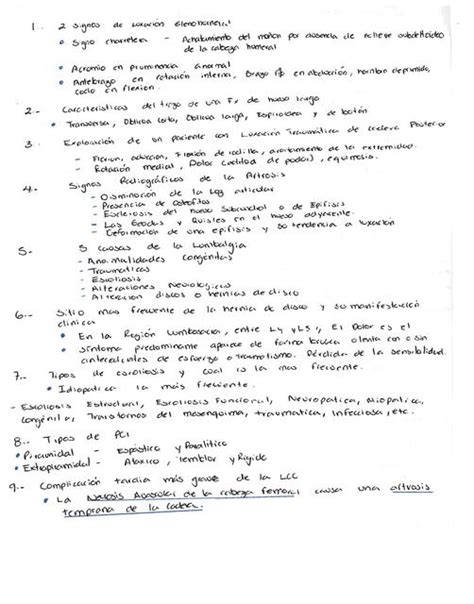 1.. 2 signos de luxación Glenohumeral
• Signo charretera - Achatamiento del muñon por ausencia de relieve subdeltoideo
de la cabeza humeral
• Acromio en prominencia anormal
• Antebrazo en rotación interna, Brazo en abducción, hombro deprimido,
codo en flexion.
2.- Características del trazo de una Fx de hueso largo
• Transversa, Oblicua corta, Oblicua larga, Espiroidea y de botón
3. Exploración de un paciente con Luxación Traumática de cadera Posterior
- Flexion, aducción, Flexión de rodilla, acortamiento de la extremidad.
- Rotación medial, Dolor (actitud de pudor), equimosis.
4.- Signos Radiográficos de la Artrosis
- Disminución de la luz articular
- Presencia de osteofitos
- Esclerosis del hueso Subcondral o de Epífisis
- Las Geodas y Quistes en el hueso adyacente.
- Deformación de una epífisis y su tendencia a luxación
5- 5 causas de la lumbalgia
- Anomalidades congénitas
- Traumaticas
- Escoliosis
- Alteraciones Neurologicas
- Alteracion discos o hernias de disco
6.- Sitio mas frecuente de la hernia de disco y su manifestación
clinica
• En la Región Lumbosacra, entre L4 y L5, El Dolor es el
síntoma predominante aparece de forma brusca o lenta con o sin
antecedentes de esfuerzo o traumatismo. Pérdida de la sensibilidad.
7.. Tipos de escoliosis y cual es la mas frecuente.
• Idiopatica la más frecuente.
- Escoliosis Estructural, Escoliosis Funcional, Neuropatica, Miopatica,
congénita, Transtornos del mesenquima, traumatica, Infecciosa, etc.
8.. Tipos de PCI
• Piramidal - Espástico y Paralitico
• Extrapiramidal - Ataxico, Temblor y Rigide
9.- Complicación tardia más grave de la LCC
• La Necrosis Avascular de la cabeza femoral causa una artrosis
temprana de la cadera.